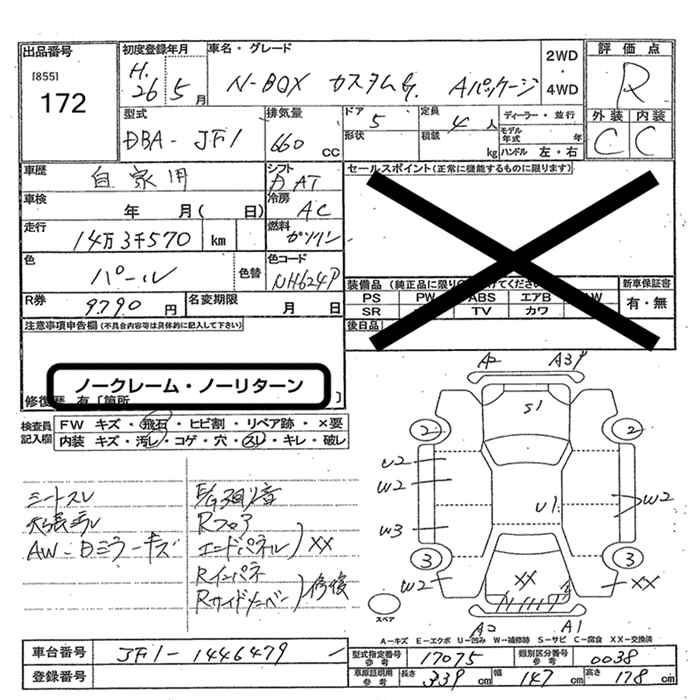 出品番号
[855]
172
初度登録年月
H.26 5月
車名・グレード
N-BOX カスタムG. Aパッケージ
2WD
・
4WD
評価点
R
外装 内装
C C
型式
DBA-JF1
排気量
660 CC
ドア 5
形状
定員 4人
積載 kg
ディーラー・並行
モデル年式 年
ハンドル 左・右
車歴
自家用
シフト
DAT
車検
年 月( 日)
冷房
AC
走行
14万3千570 km
燃料
ガソリン
色
パール
色替
色コード
NH624P
R券
9790円
名変期限
月 日
セールスポイント(正常に機能するものに限ります)
装備品(純正品に限り
けてください)
PS PW ABS エアB AW
SR TV カワ
後日品
新車保証書
有・無
注意事項申告欄(不具合内容等は具体的に記入して下さい)
ノークレーム・ノーリターン
修復歴 有〔箇所 〕
検査員記入欄
FW キズ・飛石・ヒビ割・リペア跡・×要
内装 キズ・汚レ・コゲ・穴・スレ・キレ・破レ
シートスレ
AW-Dミラーキズ
E/G廻り音
Rフロア
エンドパネル
XX
Rインパネ
Rサイドメンバー
修復
A2 A3P
S1
2 2
U2
W2
U1
W2
W3
3 3
W2
XX
XX
A2 A1
スペア
A-キズ E-エクボ U-凹み W-補修跡 S-サビ C-腐食 XX-交換済
車台番号
JF1-1446479
登録番号
型式指定番号
参考
17075
類別区分番号
参考
0038
車原証明用
参考
長さ 339cm
幅 147cm
高さ 178cm